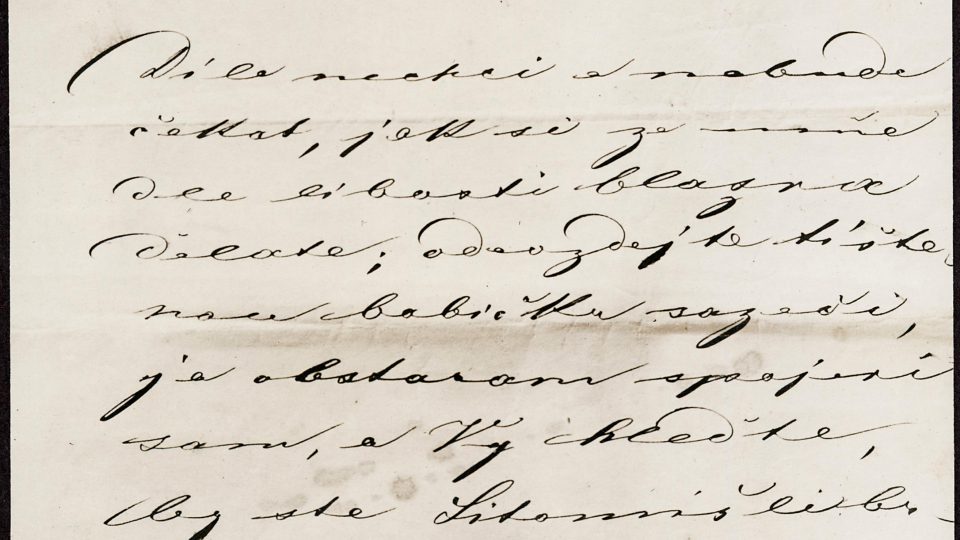 Díle nechci a nebude
čekat, jak si ze mně
dle libosti blazna
děláte; odevzdejte tíště
nou babičku sazeči,
ja obstaram spojení
sam, a Vy hleďte,
by ste Litomišli br-